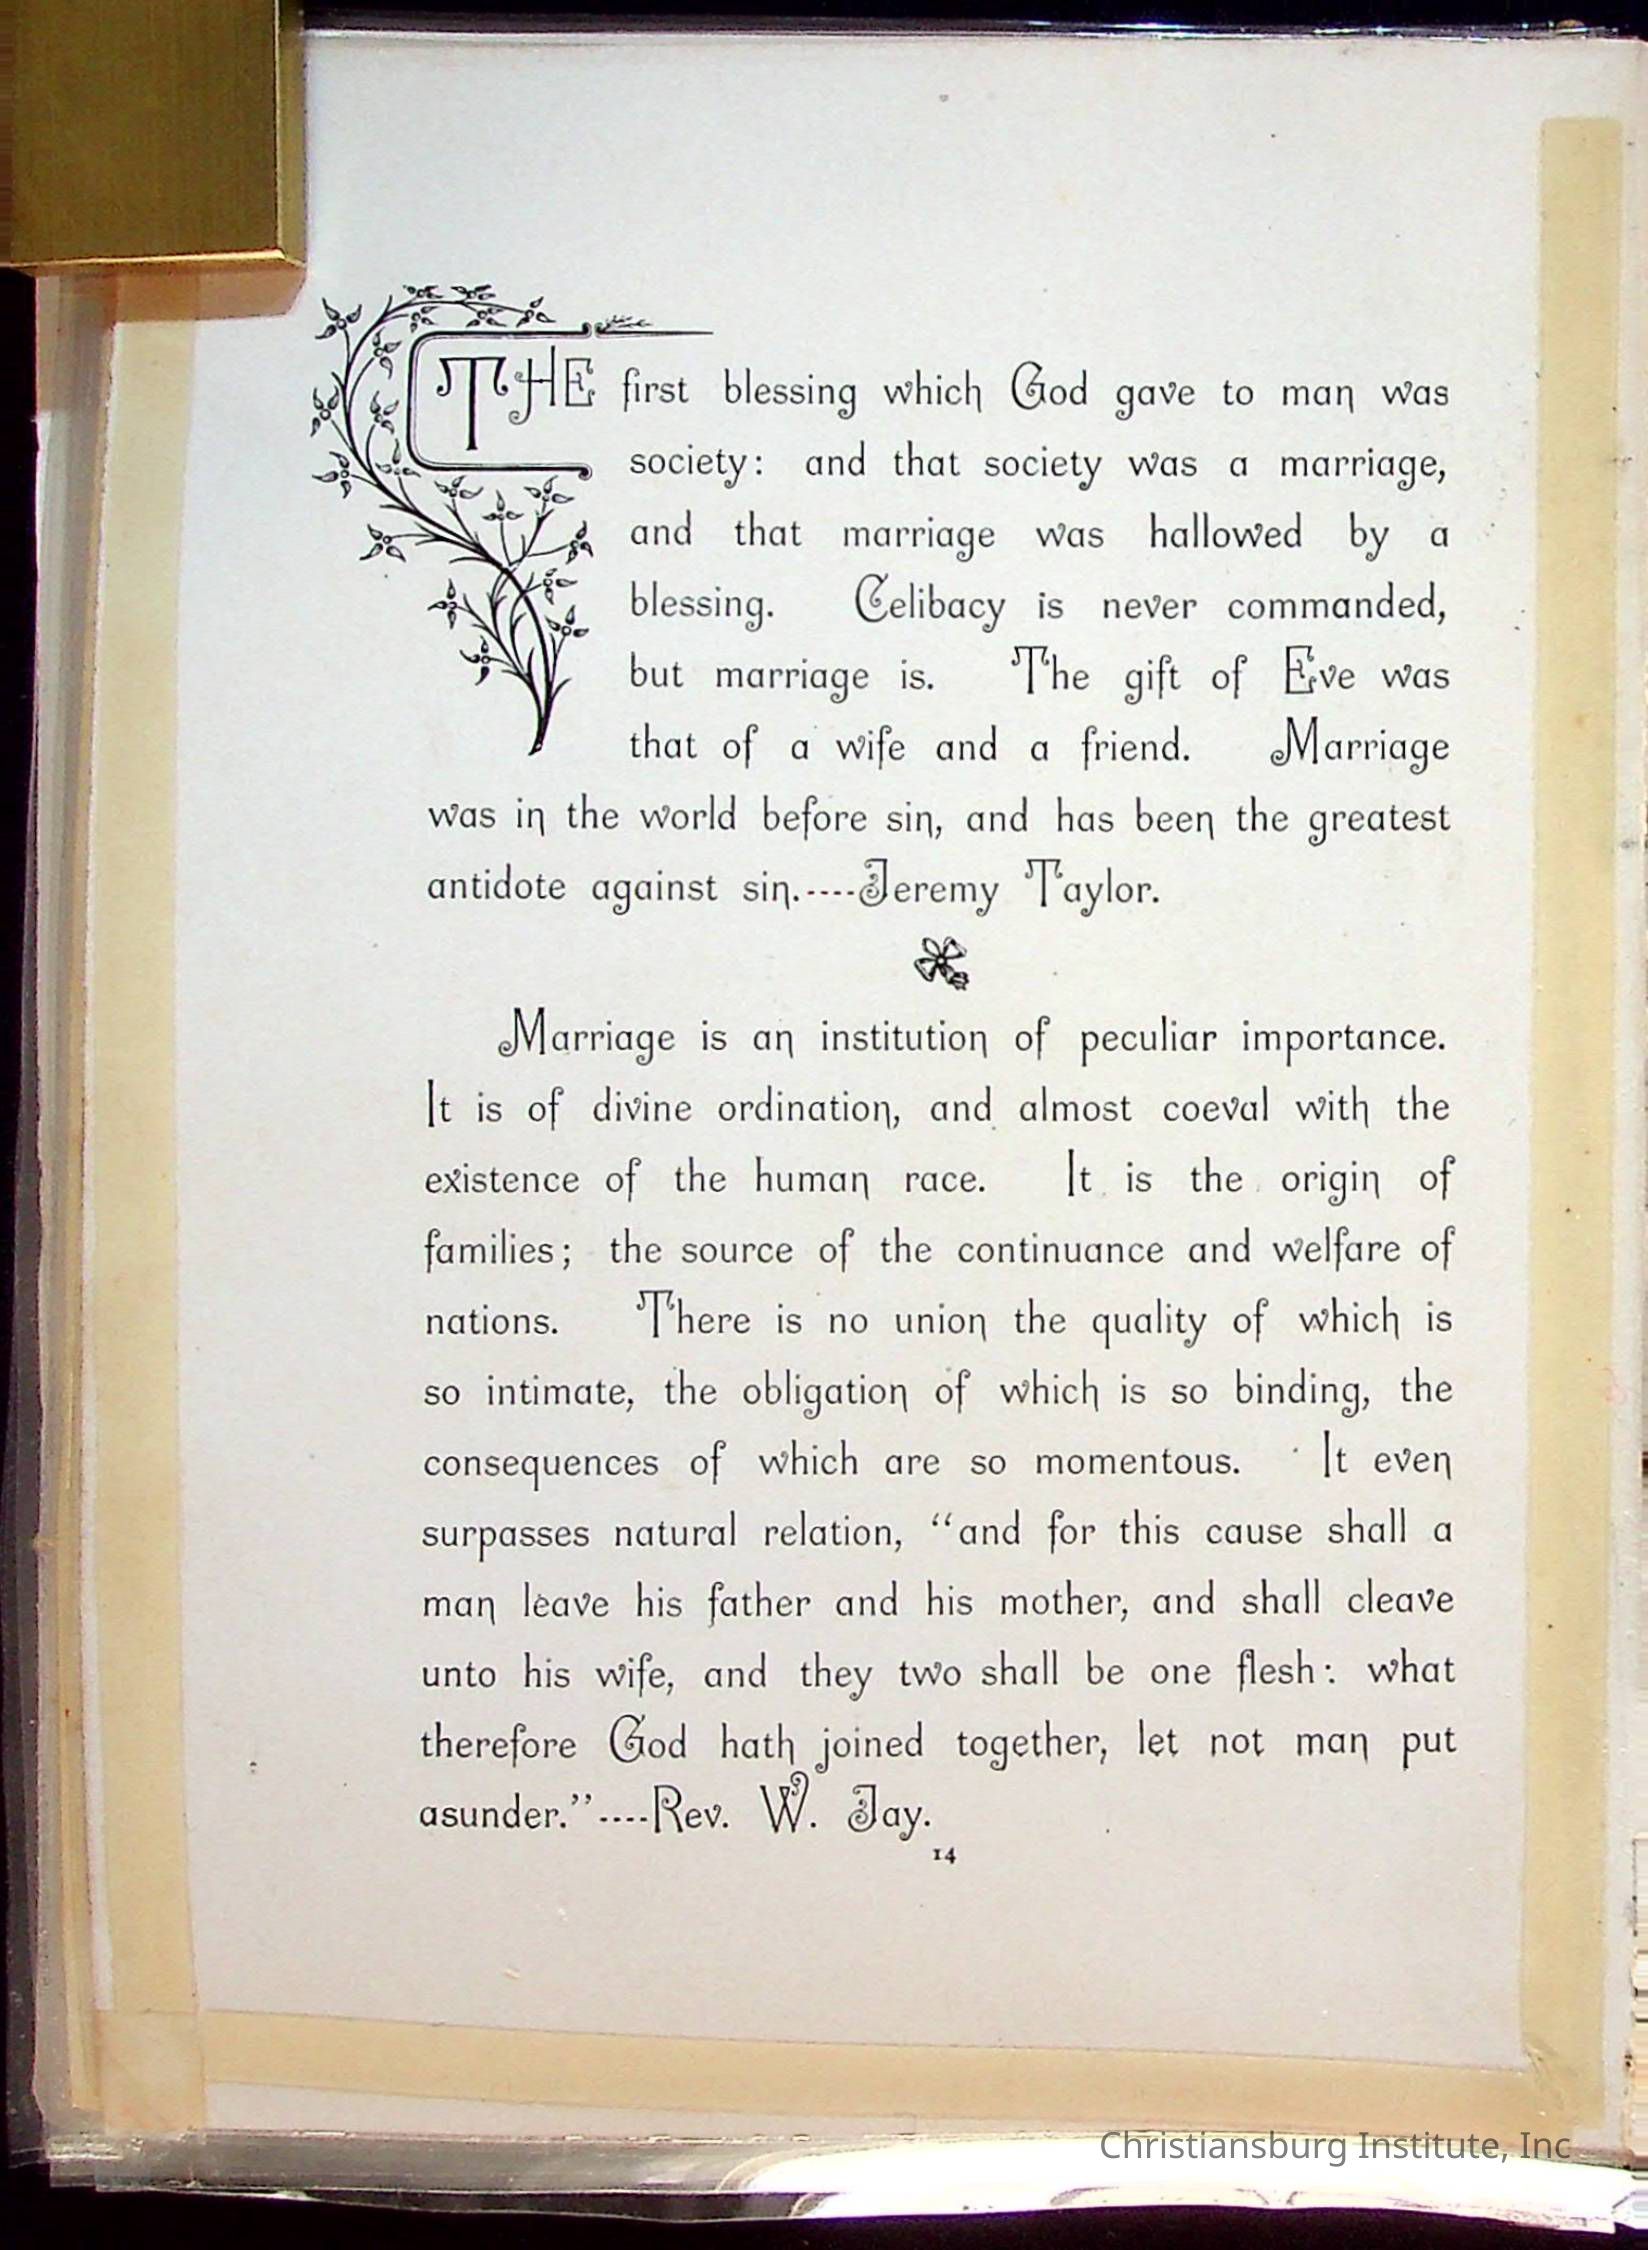 THE first blessing which God gave to man was
society: and that society was a marriage,
and that marriage was hallowed by a
blessing. Celibacy is never commanded,
but marriage is. The gift of Eve was
that of a wife and a friend. Marriage
was in the world before sin, and has been the greatest
antidote against sin.----Jeremy Taylor.
Marriage is an institution of peculiar importance.
It is of divine ordination, and almost coeval with the
existence of the human race. It is the origin of
families; the source of the continuance and welfare of
nations. There is no union the quality of which is
so intimate, the obligation of which is so binding, the
consequences of which are so momentous. It even
surpasses natural relation, “and for this cause shall a
man leave his father and his mother, and shall cleave
unto his wife, and they two shall be one flesh: what
therefore God hath joined together, let not man put
asunder.”----Rev. W. Jay.
14
Christiansburg Institute, Inc